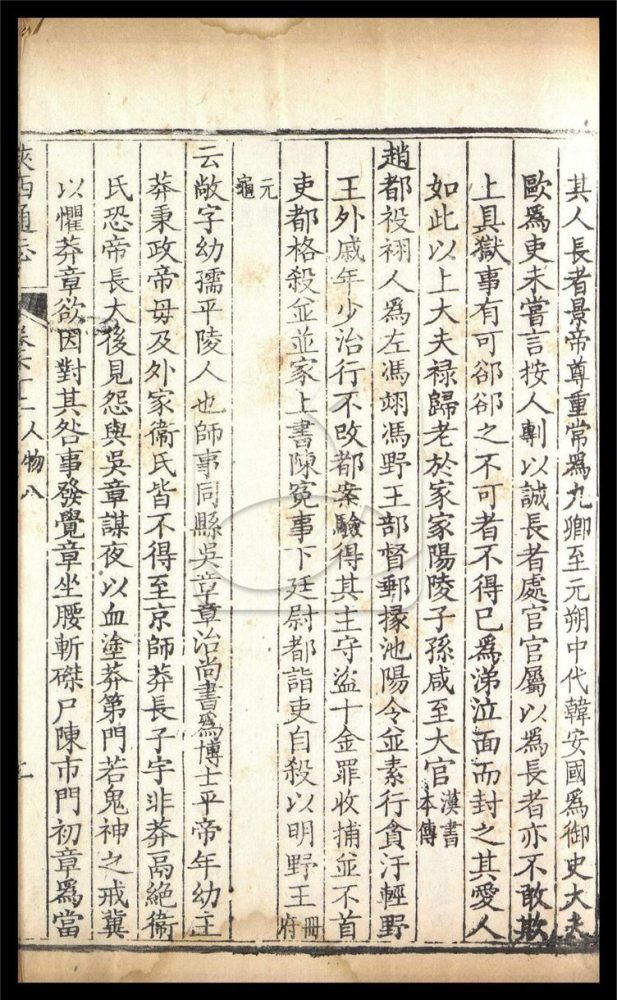 其人長者景帝尊重常爲九卿至元朔中代韓安國爲御史大夫
歐爲吏未嘗言按人剸以誠長者處官官屬以爲長者亦不敢欺
上具獄事有可郤郤之不可者不得已爲涕泣面而封之其愛人
如此以上大夫祿歸老於家家陽陵子孫咸至大官漢書
本傳
趙都祋祤人爲左馮翊馮野王部督郵掾池陽令並素行貪汙輕野
王外戚年少治行不改都案驗得其主守盜十金罪收捕並不首
吏都格殺並並家上書陳冤事下廷尉都詣吏自殺以明野王冊
府
元
龜
云敞字幼孺平陵人也師事同縣吳章章治尚書爲博士平帝年幼王
莽秉政帝母及外家衞氏皆不得至京師莽長子宇非莽鬲絶衞
氏恐帝長大後見怨與吳章謀夜以血塗莽第門若鬼神之戒冀
以懼莽章欲因對其咎事發覺章坐腰斬磔尸陳市門初章爲當
陝西通志
人物八